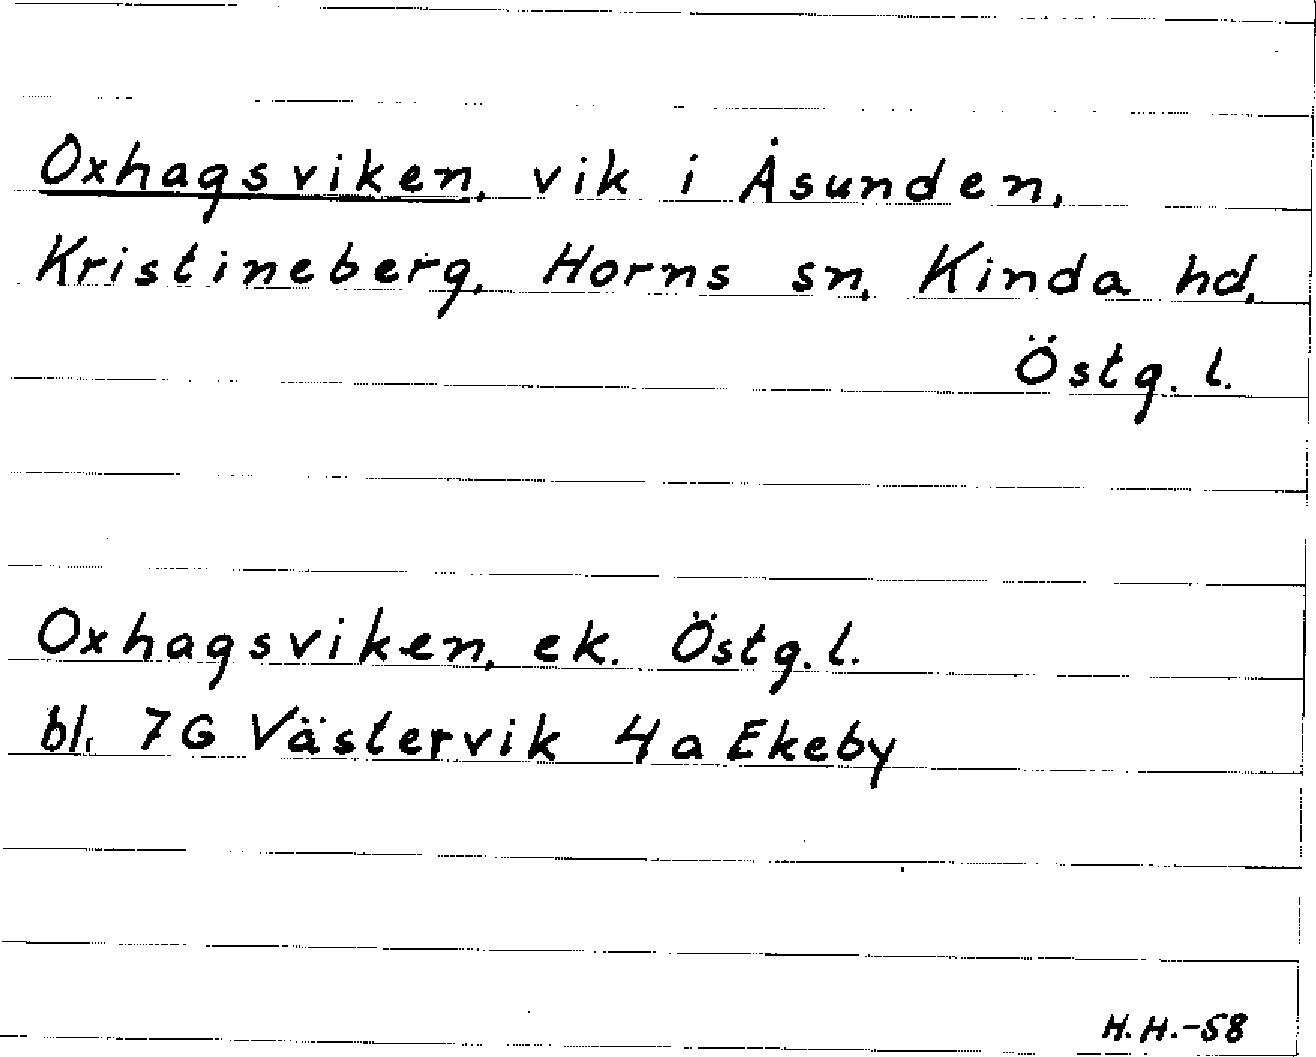 Oxhagsviken, vik i Åsunden,
Kristineberg, Horns sn, Kinda hd,
Östg. l.
Oxhagsviken, ek. Östg. l.
bl. 7G Västervik 4a Ekeby
H. H.-58